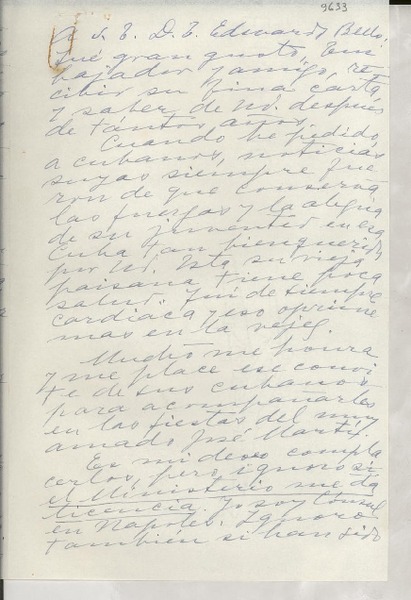 9633
A S. E. D. E. Edwards Bello.
Qué gran gusto, Em
bajador y amigo, re
cibir su fina carta
y saber de Ud. después
de tántos años.
Cuando he pedido
a cubanos, noticias
suyas siempre fue
ron de que conserva
las fuerzas y la alegría
de su juventud en esa
Cuba tan bienquerida
por Ud. Esta su vieja
paisana tiene poca
salud. Fui de siempre
cardíaca y eso oprime
mas en la vejez.
Mucho me honra
y me place ese convi
te de sus cubanos
para acompañarles
en las fiestas del muy
amado José Martí.
Es mi deseo compla
cerlos, pero, ignoro si
el Ministerio me da
licencia. Yo soy Cónsul
en Napoles. Ignoro
también si han sido